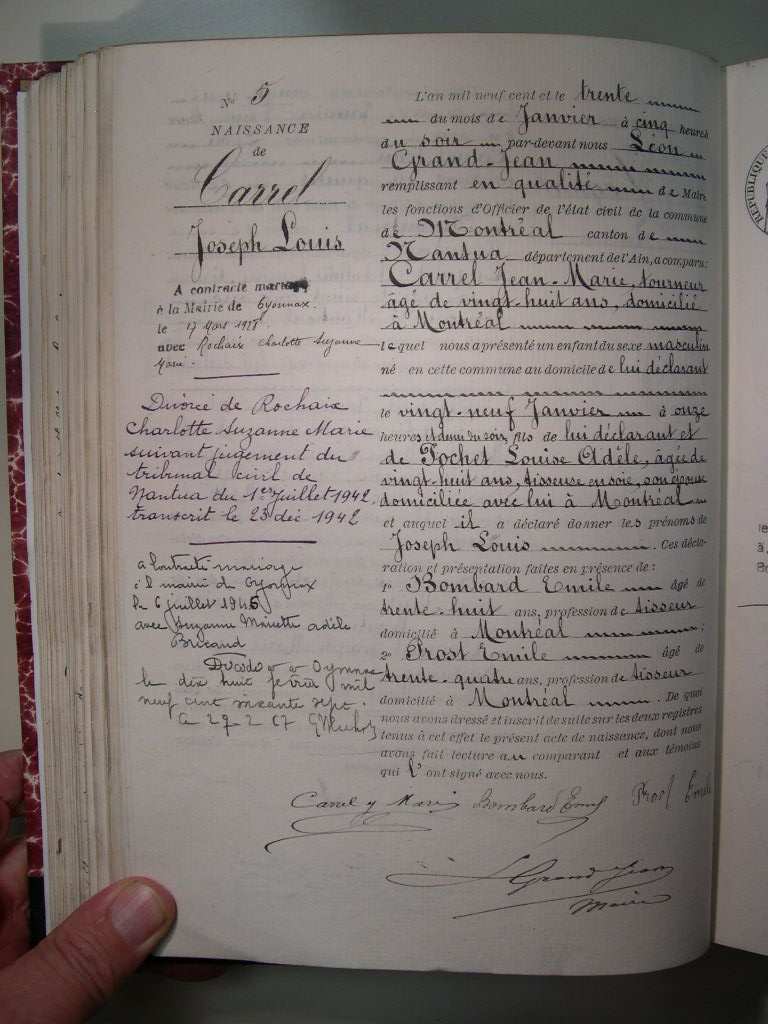 No 5
NAISSANCE
de
Carrel
Joseph Louis
A contracté mariage
à la Mairie de Oyonnax.
le 17 Mars 1928
avec Rochaix Charlotte Suzanne
Marie.
Divorcé de Rochaix
Charlotte Suzanne Marie
suivant jugement du
tribunal civil de
Nantua du 1er Juillet 1942
transcrit le 23 déc 1942
a contracté mariage
à la mairie de Oyonnax
le 6 juillet 1946
avec Suzanne Mariette Adèle
Bricand
Décédé à Oyonnax
le dix huit février mil
neuf cent soixante sept.
Le 27 2 67
L'an mil neuf cent et le trente
du mois de Janvier à cinq heures
du soir par-devant nous Léon
Grand-Jean
remplissant en qualité de Maire
les fonctions d'Officier de l'état civil de la commune
de Montréal canton de
Nantua département de l'Ain, a comparu:
Carrel Jean-Marie, tourneur
âgé de vingt-huit ans, domicilié
à Montréal
lequel nous a présenté un enfant du sexe masculin
né en cette commune au domicile de lui déclarant
le vingt-neuf Janvier à onze
heures et demi du soir, fils de lui déclarant et
de Pochet Louise Adèle, âgée de
vingt-huit ans, tisseuse en soie, son épouse
domiciliée avec lui à Montréal
et auquel il a déclaré donner les prénoms de
Joseph Louis . Ces décla-
ration et présentation faites en présence de :
1o Bombard Emile âgé de
trente-huit ans, profession de tisseur
domicilié à Montréal ;
2o Prost Emile âgé de
trente-quatre ans, profession de tisseur
domicilié à Montréal . De quoi
nous avons dressé et inscrit de suite sur les deux registres
tenus à cet effet le présent acte de naissance, dont nous
avons fait lecture au comparant et aux témoins
qui l'ont signé avec nous.
Carrel J Marie Bombard Emile Prost Emile
L Grand Jean
Maire
RÉPUBLIQUE